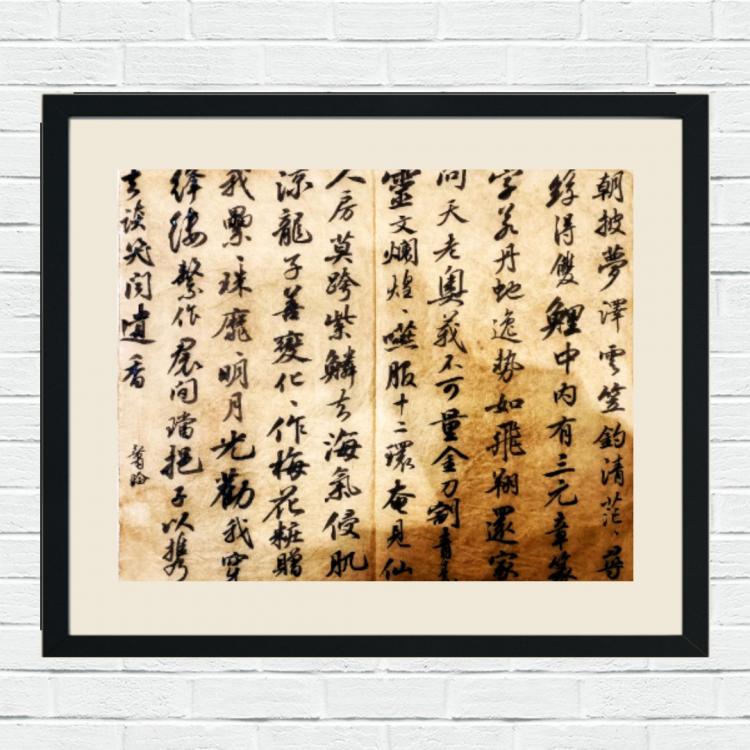 朝披夢澤雲笠釣清茫、尋
絲得雙鯉中內有三元章篆
字若丹虵逸勢如飛翔還家
問天老奧義不可量金刀割青素
靈文爛煌、嚥服十二環奄見仙
人房莫跨紫鱗去海氣侵肌
涼龍子善變化、作梅花粧贈
我纍、珠靡、明月光勸我穿
絳縷繫作裙間璫挹子以攜
去談笑聞遺香